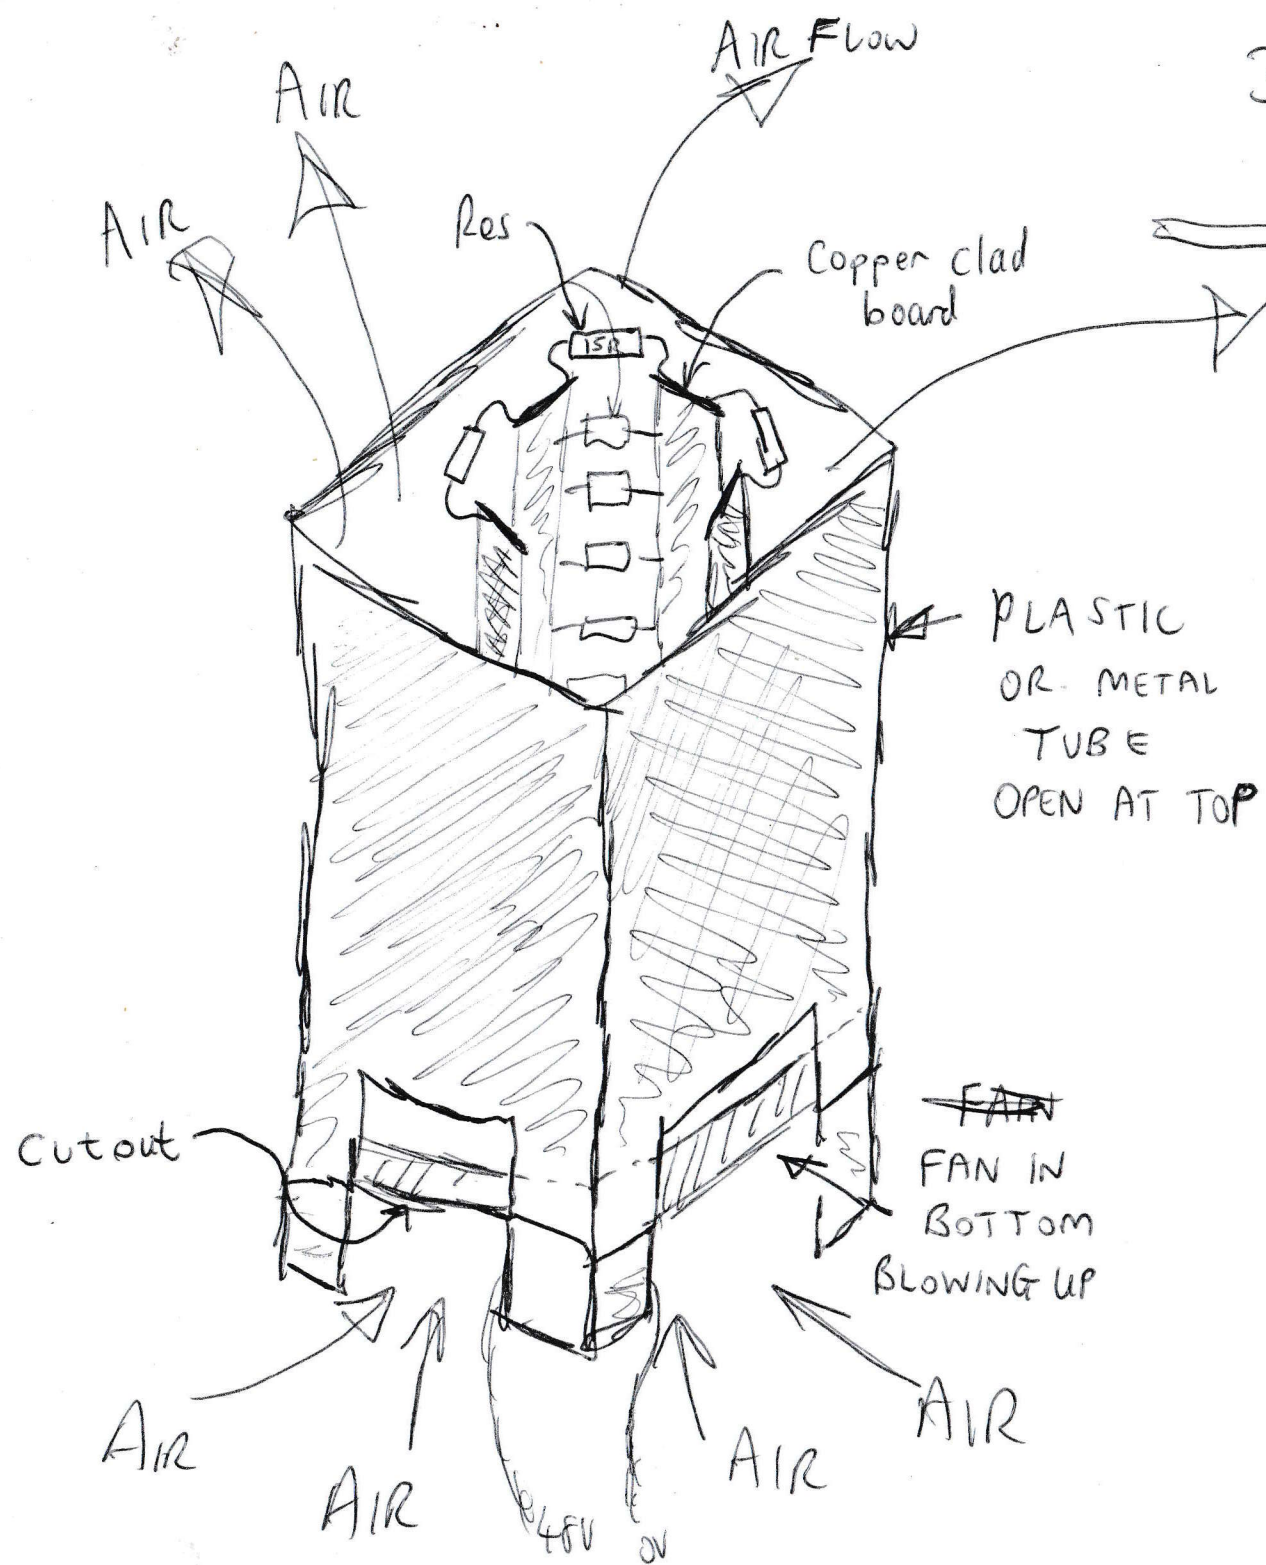 AIR FLOW
AIR
AIR
Res
Copper clad
board
15R
PLASTIC
OR METAL
TUBE
OPEN AT TOP
Cutout
FAN
FAN IN
BOTTOM
BLOWING UP
AIR
AIR
AIR
AIR
48V
0V